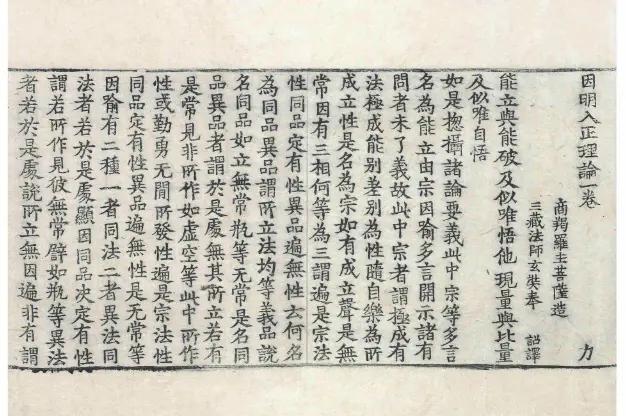 因明入正理論一卷 力
商羯羅主菩薩造
三藏法師玄奘奉 詔譯
能立與能破及似唯悟他現量與比量
及似唯自悟
如是揔攝諸論要義此中宗等多言
名為能立由宗因喻多言開示諸有
問者未了義故此中宗者謂極成有
法極成能別差別為性隨自樂為所
成立性是名為宗如有成立聲是無
常因有三相何等為三謂遍是宗法
性同品定有性異品遍無性云何名
為同品異品謂所立法均等義品說
名同品如立無常瓶等無常是名同
品異品者謂於是處無其所立若有
是常見非所作如虛空等此中所作
性或勤勇無間所發性遍是宗法性
同品定有性異品遍無性是无常等
因喻有二種一者同法二者異法同
法者若於是處顯因同品決定有性
謂若所作見彼無常譬如瓶等異法
者若於是處說所立無因遍非有謂